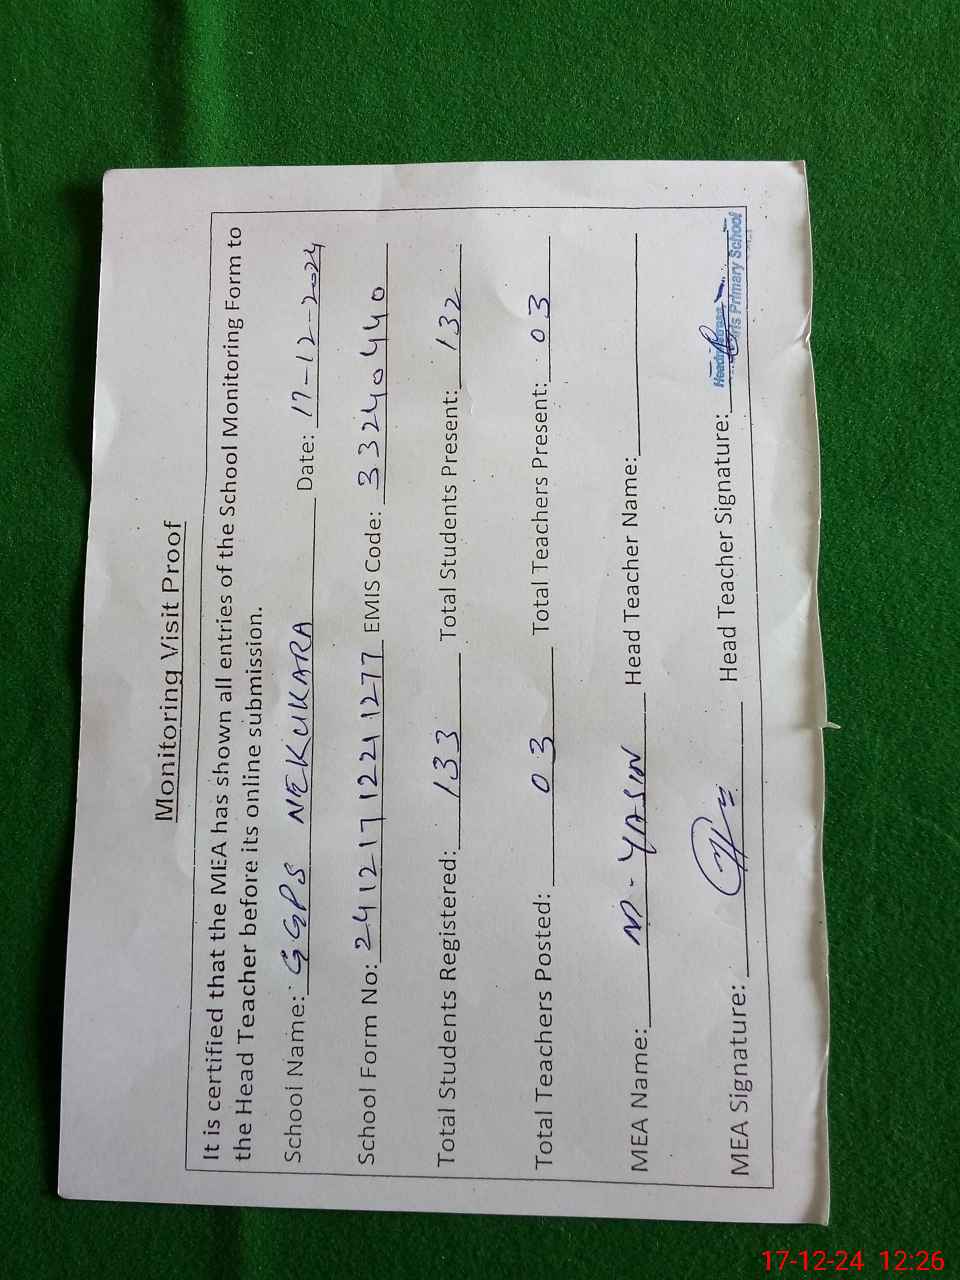 Monitoring Visit Proof
It is certified that the MEA has shown all entries of the School Monitoring Form to
the Head Teacher before its online submission.
School Name: GGPS NEKUKARA Date: 17-12-2024
School Form No: 241217122 1277 EMIS Code: 33240440
Total Students Registered: 133 Total Students Present: 132
Total Teachers Posted: 03 Total Teachers Present: 03
MEA Name: M - YASIN Head Teacher Name:
MEA Signature: Head Teacher Signature:
Primary School
17-12-24 12:26